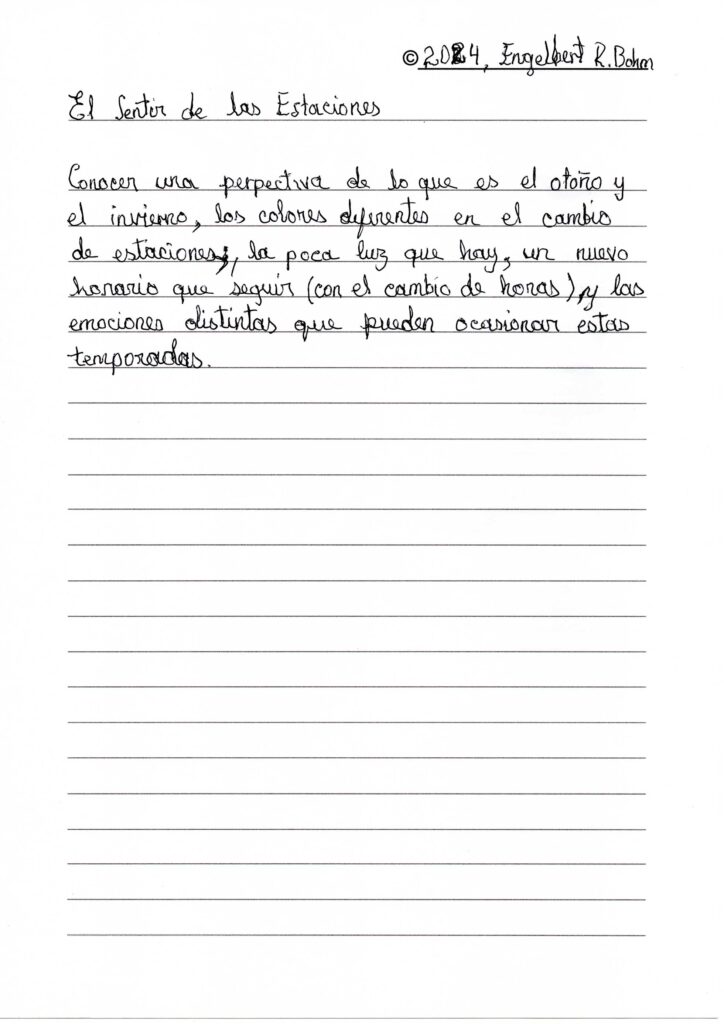 © 2024, Engelbert R. Bohm
El Sentir de las Estaciones
Conocer una perpectiva de lo que es el otoño y
el invierno, los colores diferentes en el cambio
de estaciones, la poca luz que hay, un nuevo
horario que seguir (con el cambio de horas) y las
emociones distintas que pueden ocasionar estas
temporadas.